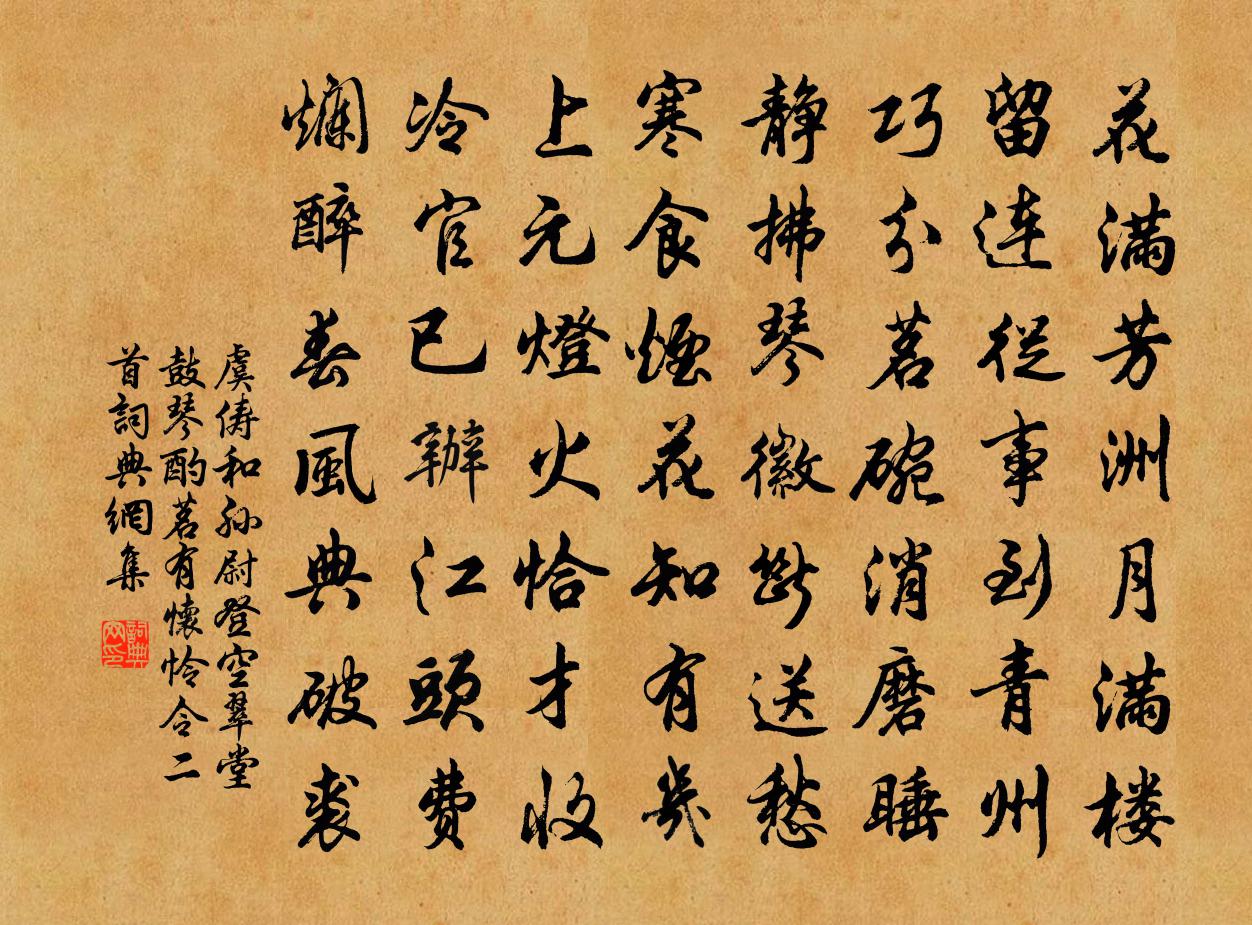 花滿芳洲月滿楼
留連從事到青州
巧分茗碗消磨睡
靜拂琴徽斷送愁
寒食煙花知有幾
上元燈火恰才收
冷官已辦江頭費
爛醉春風典破裘
虞儔和孫尉登空翠堂
鼓琴酌茗有懷怜令二
首詞典網集
詞典
网印